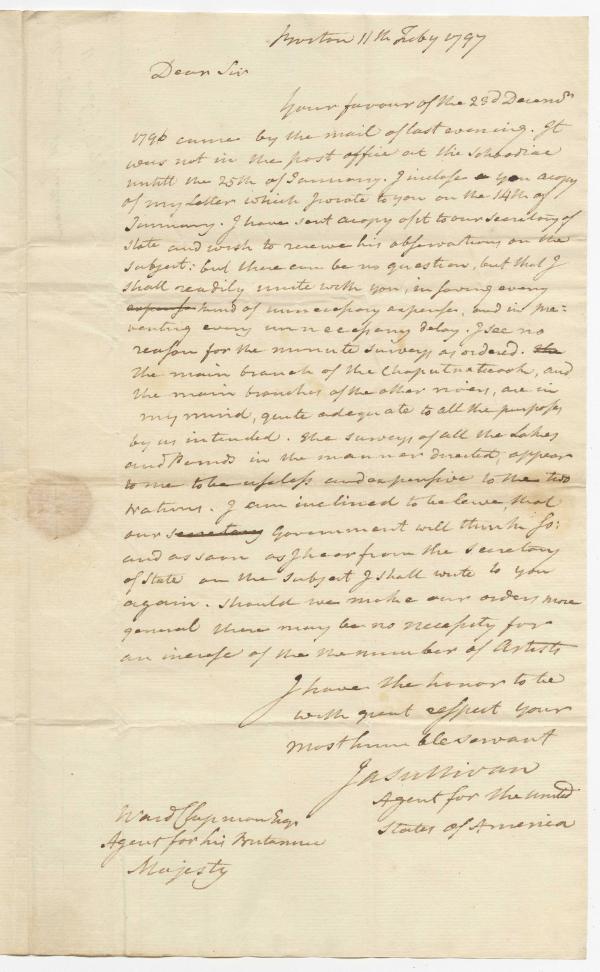 Boston 11th Feby 1797
Dear Sir
Your favour of the 23d Decemr
1796 came by the mail of last evening. It
was not in the post office at the Schoodiac
untill the 25th of January. I inclose you a copy
of my Letter which I wrote to you on the 14th of
January. I have sent a copy of it to our Secretary of
State and wish to receive his observations on the
subject: but there can be no question, but that I
shall readily unite with you, in saving every
expense kind of unnecessary expense, and in pre=
venting every unnecessary delay. I see no
reason for the minute surveys as ordered. the
the main branch of the Chaputnaticook, and
the main branches of the other rivers, are in
my mind, quite adequate to all the purposes
by us intended. The surveys of all the Lakes
and Ponds in the manner directed, appear
to me to be useless and expensive to the two
Nations. I am inclined to beleive, that
our secretary Government will think so:
and as soon as I hear from the secretary
of State on the subject I shall write to you
again. Should we make our orders more
general there may be no necessity for
an increse of the the number of Artists
I have the honor to be
with great respect your
most humble servant
Ja Sullivan
Agent for the United
States of America
Ward Chipman Esqr
Agent for his Britannic
Majesty